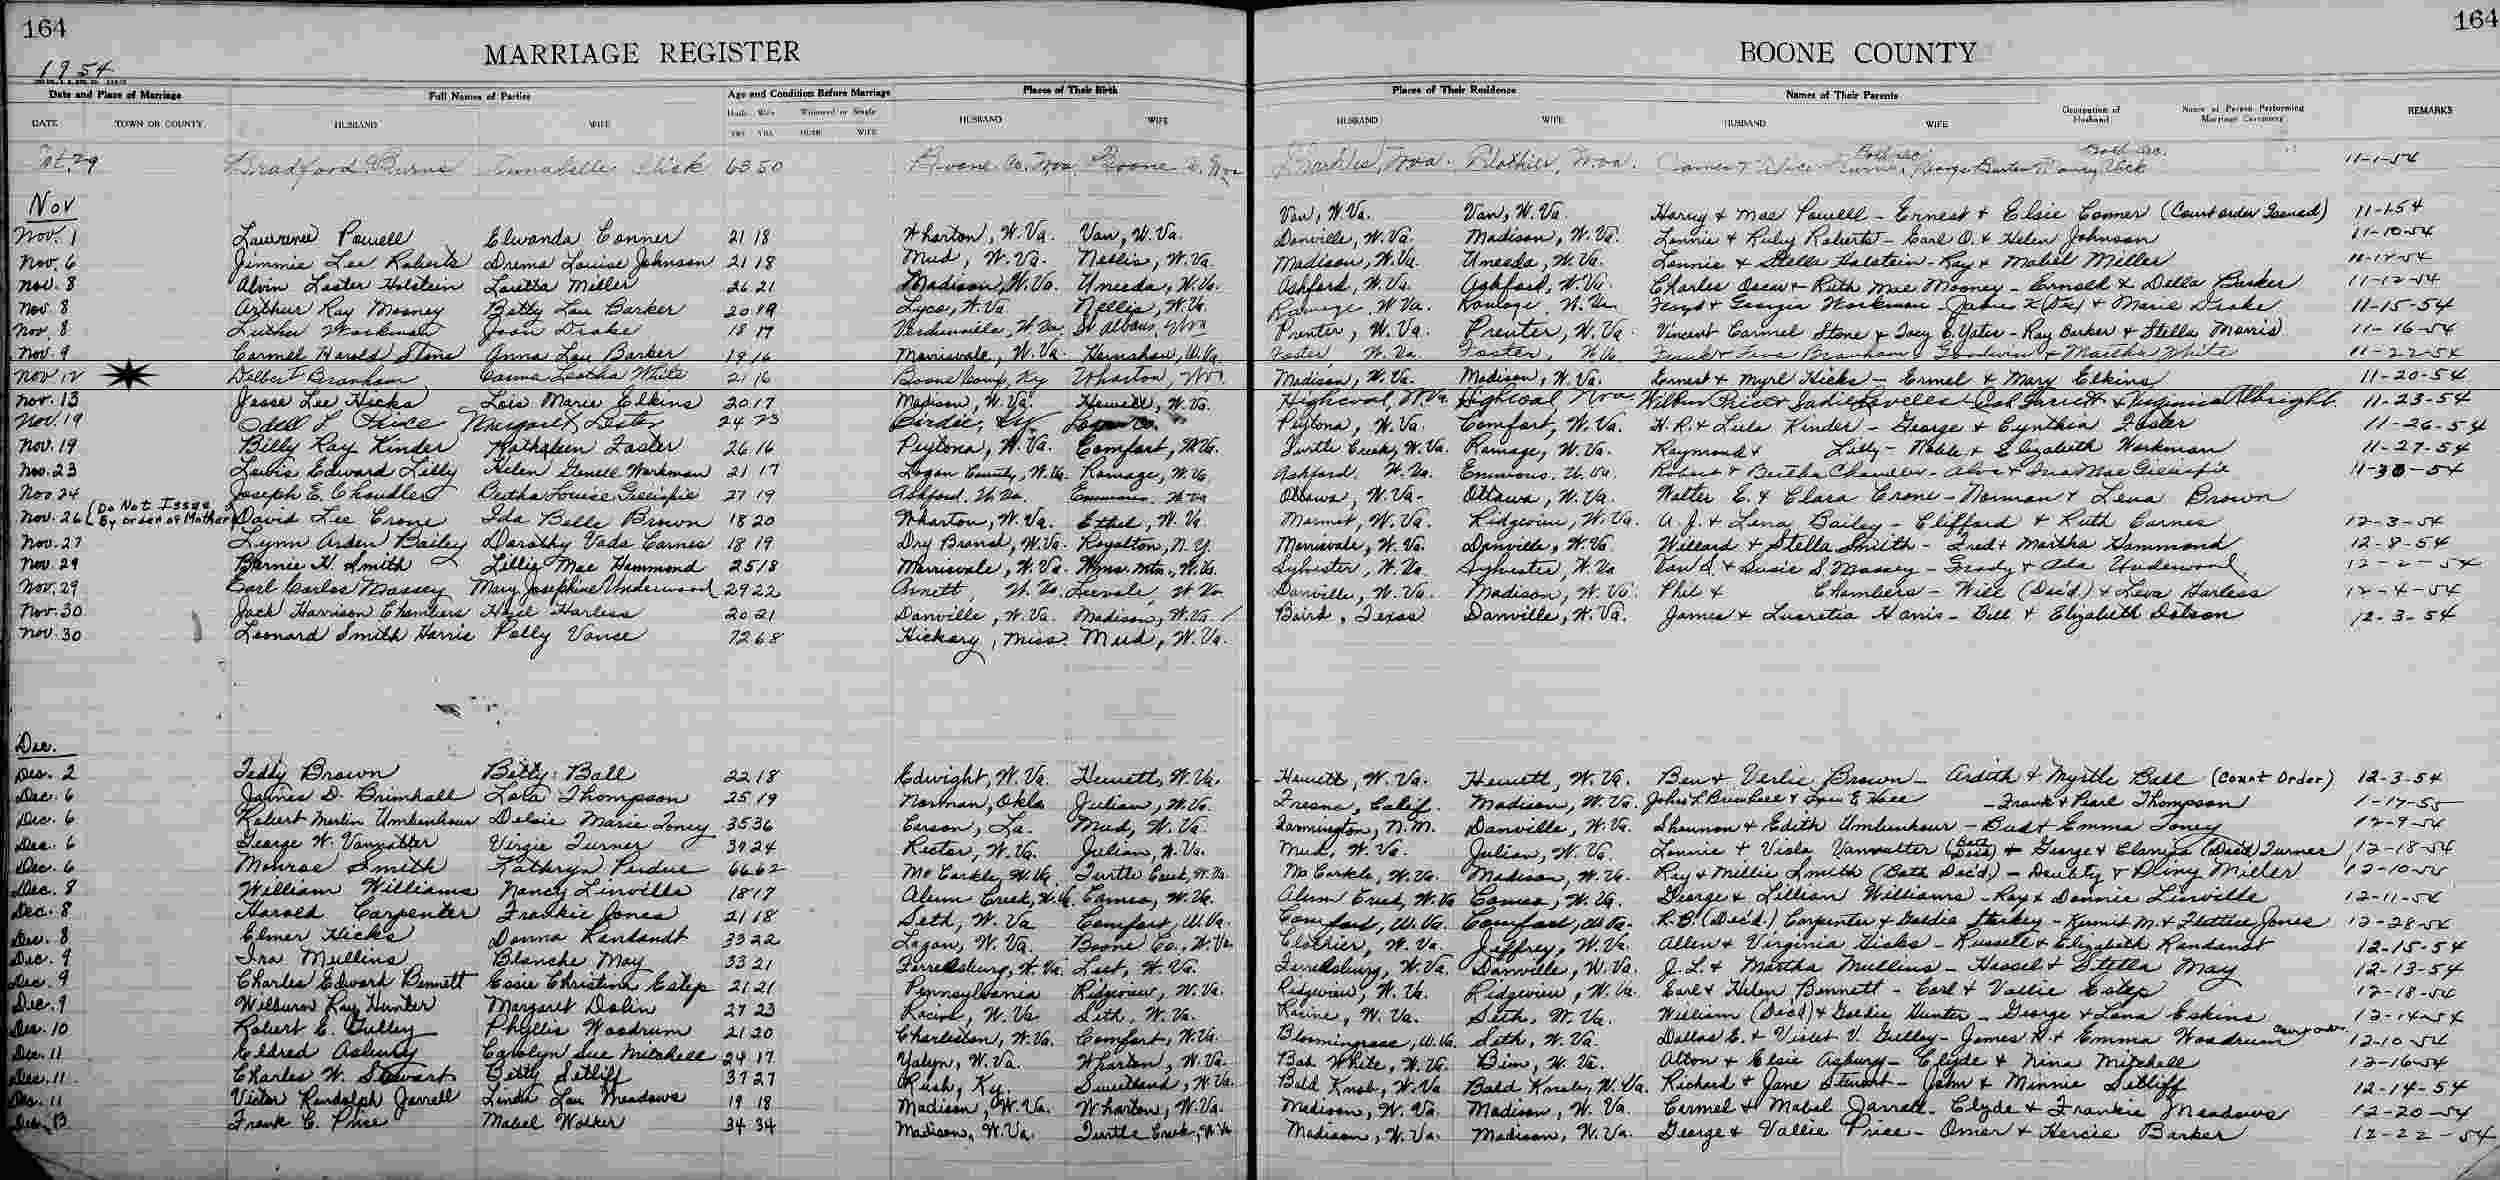 164
164
MARRIAGE REGISTER
BOONE COUNTY
1954
Date and Place of Marriage Full Names of Parties Age and Condition Before Marriage Places of Their Birth Places of Their Residence Names of Their Parents Occupation of Husband Name of Person Performing Marriage Ceremony REMARKS
DATE TOWN OR COUNTY HUSBAND WIFE Husb. Wife Widowed or Single HUSBAND WIFE HUSBAND WIFE HUSBAND WIFE
YRS YRS HUSB WIFE
Oct. 29 Bradford Burns Annabelle 63 50 Boone Co. Wva Boone Co. Wva Wva. Clothier, Wva. 11-1-54
Nov
Nov. 1 Lawrence Powell Elwanda Conner 21 18 Wharton, W. Va. Van, W. Va. Van, W. Va. Van, W. Va. Harry & Mae Powell - Ernest & Elsie Conner (Court order Issued) 11-1-54
Nov. 6 Jimmie Lee Roberts Drema Louise Johnson 21 18 Mud, W. Va. Nellis, W. Va. Danville, W. Va. Madison, W. Va. Lonnie & Ruby Roberts - Earl O. & Helen Johnson 11-10-54
Nov. 8 Alvin Lester Holstein Loretta Miller 26 21 Madison, W. Va. Uneeda, W. Va. Madison, W. Va. Uneeda, W. Va. Lonnie & Stella Holstein - Ray & Mabel Miller 11-12-54
Nov 8 Arthur Ray Mooney Betty Lou Barker 20 19 W. Va. Nellis, W. Va. Ashford, W. Va. Ashford, W. Va. Charles Oscar & Ruth Mae Mooney - Ernest & Della Barker 11-12-54
Nov. 8 Luther Workman Joan Drake 18 17 Verdunville, W. Va. St Albans, Wva Ramage, W. Va. Ramage, W. Va. & Georgia Workman - & Marie Drake 11-15-54
Nov. 9 Carmel Harold Stone Anna Lou Barker 19 16 Morrisvale, W. Va. Hernshaw, W. Va. Prenter, W. Va. Prenter, W. Va. Vincent Carmel Stone & - Ray Barker & Stella Morris 11-16-54
Nov 12 Delbert Branham Leatha White 21 16 Boone Camp, Ky Wharton, Wva. Foster, W. Va. Foster, W. Va. Branham Goodwin & Martha White 11-22-54
Nov. 13 Jesse Lee Hicks Lois Marie Elkins 20 17 Madison, W. Va. Hewett, W. Va. Madison, W. Va. Madison, W. Va. Ernest & Myrl Hicks - Ermel & Mary Elkins 11-20-54
Nov. 19 Odell L Price Margaret Lester 24 23 Birdie, Ky Logan Co. Highcoal, W. Va. Highcoal Wva Wilburn Price & Sadie - & Virginia Albright. 11-23-54
Nov. 19 Billy Ray Kinder Kathaleen Foster 26 16 Peytona, W. Va. Comfort, W. Va. Peytona, W. Va. Comfort, W. Va. H. R. & Lula Kinder - George & Cynthia Foster 11-26-54
Nov. 23 Lewis Edward Lilly Helen Workman 21 17 Logan County, W. Va. Ramage, W. Va. Turtle Creek, W. Va. Ramage, W. Va. Raymond & Lilly - Noble & Elizabeth Workman 11-27-54
Nov 24 Joseph E. Chandler Bertha Louise Gillispie 27 19 Ashford, W. Va. Emmons, W. Va. Ashford, W. Va. Emmons, W. Va. Robert & Bertha Chandler - & Gillispie 11-30-54
Nov. 26 (Do Not Issue By order of Mother) David Lee Crone Ida Belle Brown 18 20 Wharton, W. Va. Ethel, W. Va. Ottawa, W. Va. Ottawa, W. Va. Walter E. & Clara Crone - Norman & Lena Brown
Nov. 27 Lynn Arden Bailey Dorothy Vada Carnes 18 19 Dry Branch, W. Va. Royalton, N. Y. Marmet, W. Va. Ridgeview, W. Va. A. J. & Lena Bailey - Clifford & Ruth Carnes 12-3-54
Nov. 29 Bernie H. Smith Lillie Mae Hammond 25 18 Morrisvale, W. Va. Wms. Mtn., W. Va. Morrisvale, W. Va. Danville, W. Va. Willard & Stella Smith - Fred & Martha Hammond 12-8-54
Nov. 29 Earl Carlos Massey Mary Josephine Underwood 29 22 Arnett, W. Va. Leevale, W. Va. Sylvester, W. Va. Sylvester, W. Va. & Susie S. Massey - Grady & Ada Underwood 12-2-54
Nov. 30 Jack Harrison Chambers Hazel Harless 20 21 Danville, W. Va. Madison, W. Va. Danville, W. Va. Madison, W. Va. Phil & Chambers - Will (Dec'd) & Leva Harless 12-4-54
Nov. 30 Leonard Smith Harris Polly Vance 72 68 Hickory, Miss. Mud, W. Va. Baird, Texas Danville, W. Va. James & Lucretia Harris - Bill & Elizabeth Dotson 12-3-54
Dec.
Dec. 2 Teddy Brown Betty Ball 22 18 Edwight, W. Va. Hewett, W. Va. Hewett, W. Va. Hewett, W. Va. Ben & Verlie Brown - Ardith & Myrtle Ball (Court Order) 12-3-54
Dec. 6 James D. Brimhall Lola Thompson 25 19 Norman, Okla Julian, W. Va. Fresno, Calif. Madison, W. Va. John L Brimhall & - Frank & Pearl Thompson 1-17-55
Dec. 6 Robert Merlin Umbenhour Delsie Marie Toney 35 36 Carson, La. Mud, W. Va. Farmington, N. M. Danville, W. Va. Shannon & Edith Umbenhour - Bud & Emma Toney 12-9-54
Dec. 6 George W. Vannatter Virgie Turner 39 24 Rector, W. Va. Julian, W. Va. Mud, W. Va. Julian, W. Va. Lonnie & Viola Vannatter (Both Dec'd) & George & (Dec'd) Turner 12-18-54
Dec. 6 Monroe Smith Kathryn Perdue 66 62 Mc Corkle, W. Va. Turtle Creek, W. Va. Mc Corkle, W. Va. Madison, W. Va. Ray & Millie Smith (Both Dec'd) - & Pliny Miller 12-10-54
Dec. 8 William Williams Nancy Linville 18 17 Alum Creek, W. Va. Cameo, W. Va. Alum Creek, W. Va. Cameo, W. Va. George & Lillian Williams - Ray & Donnie Linville 12-11-54
Dec. 8 Harold Carpenter Frankie Jones 21 18 Seth, W. Va. Comfort, W. Va. Comfort, W. Va. Comfort, W. Va. R. B. (Dec'd.) Carpenter & Goldia - Kermit M. & Jones 12-28-54
Dec. 8 Elmer Hicks Donna Randandt 33 22 Logan, W. Va. Boone Co., W. Va. Clothier, W. Va. Jeffrey, W. Va. Allen & Virginia Hicks - Russell & Elizabeth Randandt 12-15-54
Dec. 9 Ira Mullins Blanche May 33 21 Ferrellsburg, W. Va. W. Va. Ferrellsburg, W. Va. Danville, W. Va. J. L. & Martha Mullins - Hassel & Stella May 12-13-54
Dec. 9 Charles Edward Bennett Essie Christine Estep 21 21 Pennsylvania Ridgeview, W. Va. Ridgeview, W. Va. Ridgeview, W. Va. Earl & Helen Bennett - Carl & Vallie Estep 12-18-54
Dec. 9 Wilburn Ray Hunter Margaret Dolin 27 23 Racine, W. Va. Seth, W. Va. Racine, W. Va. Seth, W. Va. William (Dec'd) & Goldie Hunter - George & Lana Eskins 12-14-54
Dec. 10 Robert E. Gulley Phyllis Woodrum 21 20 Charleston, W. Va. Comfort, W. Va. Bloomingrose, W. Va. Seth, W. Va. Dallas E. & Violet V. Gulley - James H. & Emma Woodrum Court order 12-10-54
Dec. 11 Eldred Asbury Carolyn Sue Mitchell 24 17 Yolyn, W. Va. Wharton, W. Va. Bob White, W. Va. Bim, W. Va. Alton & Elsie Asbury - Clyde & Nina Mitchell 12-16-54
Dec. 11 Charles W. Stewart Betty Setliff 37 27 Rush, Ky. Sweetland, W. Va. Bald Knob, W. Va. Bald Knob, W. Va. Richard & Jane Stewart - John & Minnie Setliff 12-14-54
Dec. 11 Victor Randolph Jarrell Linda Lou Meadows 19 18 Madison, W. Va. Wharton, W. Va. Madison, W. Va. Madison, W. Va. Carmel & Mabel Jarrell - Clyde & Frankie Meadows 12-20-54
Dec. 13 Frank C. Price Mabel Walker 34 34 Madison, W. Va. Turtle Creek, W. Va. Madison, W. Va. Madison, W. Va. George & Vallie Price - Omar & Hercie Barker 12-22-54